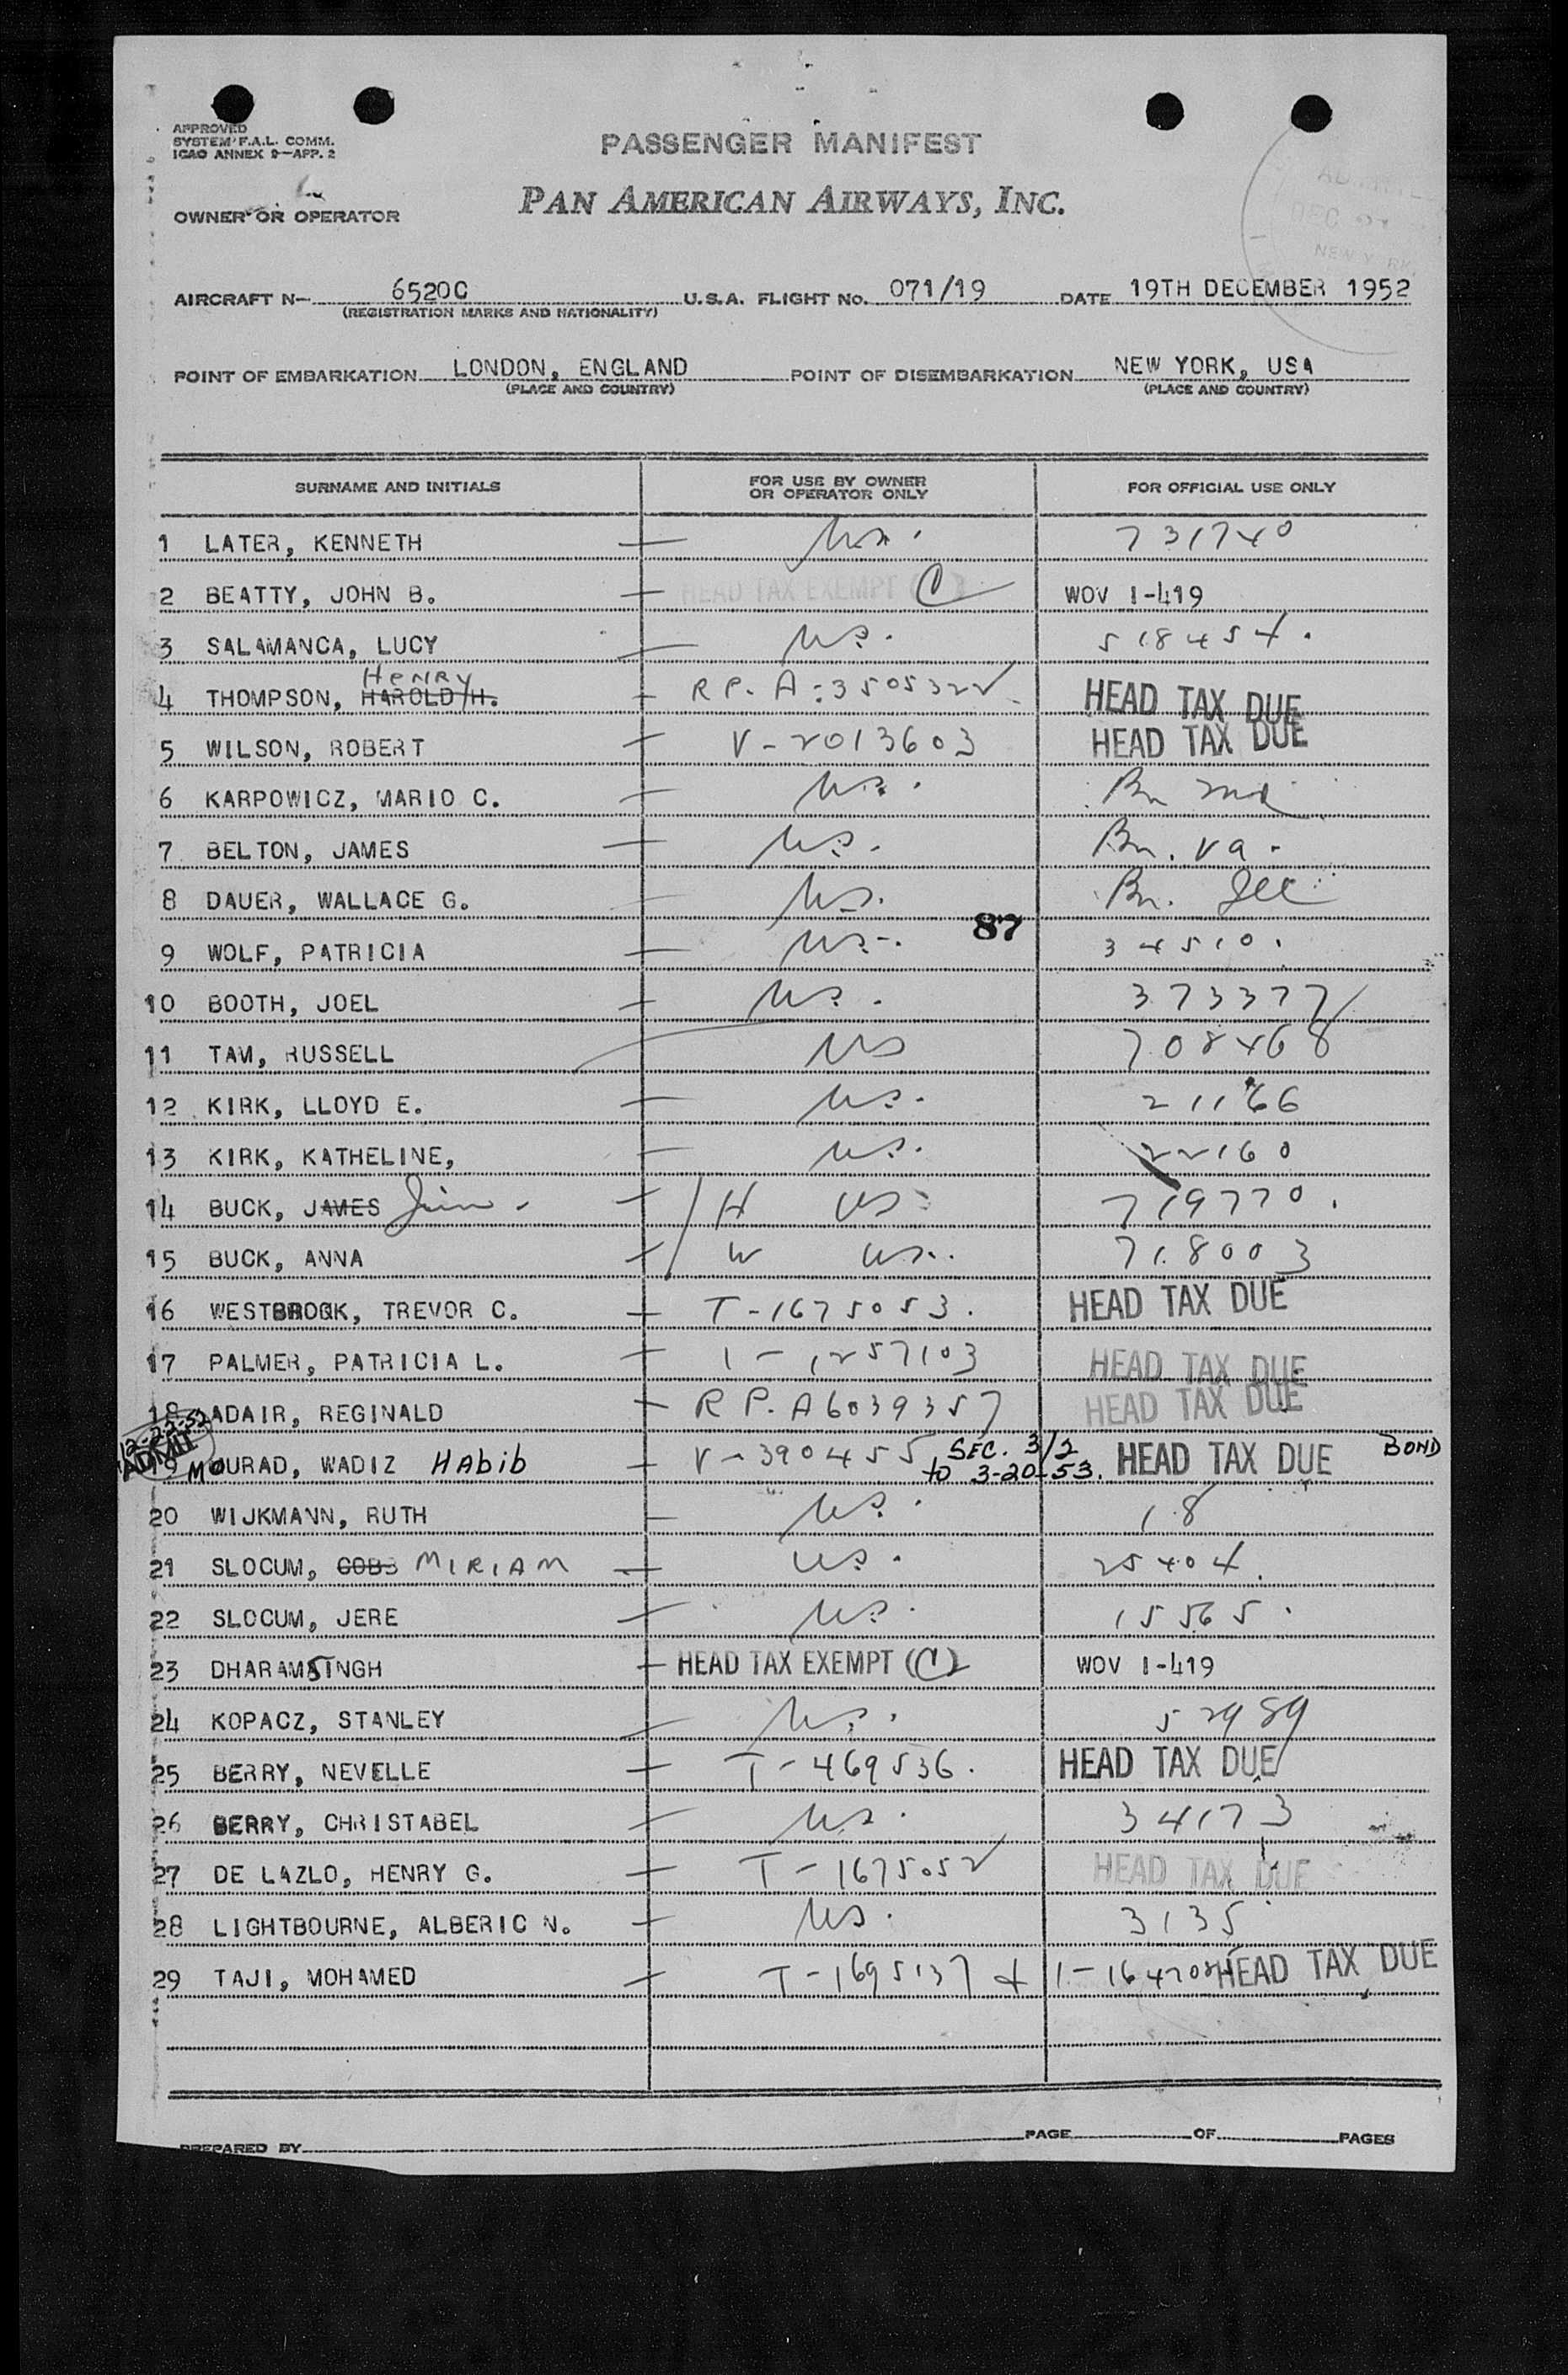 APPROVED
SYSTEM F.A.L. COMM.
ICAO ANNEX 9—APP. 2
PASSENGER MANIFEST
OWNER OR OPERATOR PAN AMERICAN AIRWAYS, INC.
DEC
NEW YORK
AIRCRAFT N— 6520C U.S.A. FLIGHT No. 071/19 DATE 19TH DECEMBER 1952
(REGISTRATION MARKS AND NATIONALITY)
POINT OF EMBARKATION LONDON, ENGLAND POINT OF DISEMBARKATION NEW YORK, USA
(PLACE AND COUNTRY) (PLACE AND COUNTRY)
SURNAME AND INITIALS FOR USE BY OWNER OR OPERATOR ONLY FOR OFFICIAL USE ONLY
1 LATER, KENNETH — US. 731740
2 BEATTY, JOHN B. — HEAD TAX EXEMPT (C) WOV 1-419
3 SALAMANCA, LUCY — US. 518454.
Henry
4 THOMPSON, HAROLD H. — R P. A-3505322 HEAD TAX DUE
5 WILSON, ROBERT — V-2013603 HEAD TAX DUE
6 KARPOWICZ, MARIO C. — US. Bn md
7 BELTON, JAMES — US. Bn. va.
8 DAUER, WALLACE G. — US. Bn. Ill
87
9 WOLF, PATRICIA — US. 34510.
10 BOOTH, JOEL — US. 373377
11 TAM, RUSSELL US 708468
12 KIRK, LLOYD E. — US. 21166
13 KIRK, KATHELINE, — US. 22160
14 BUCK, JAMES Jim — H US 719770.
15 BUCK, ANNA — W US. 718003
16 WESTBROOK, TREVOR C. — T-1675053. HEAD TAX DUE
17 PALMER, PATRICIA L. — I-1257103 HEAD TAX DUE
18 ADAIR, REGINALD — R P. A6039357 HEAD TAX DUE
12-22-52
ADMIT
19 MOURAD, WADIZ HAbib — V-390455 SEC. 3/2 HEAD TAX DUE BOND
to 3-20-53.
20 WIJKMANN, RUTH — US. 18
21 SLOCUM, COBB MIRIAM — US. 25404.
22 SLOCUM, JERE — US. 15565.
23 DHARAMSINGH — HEAD TAX EXEMPT (C) WOV 1-419
24 KOPACZ, STANLEY — US. 52989
25 BERRY, NEVELLE — T-469536. HEAD TAX DUE
26 BERRY, CHRISTABEL — US. 34173
27 DE LAZLO, HENRY G. — T-1675052 HEAD TAX DUE
28 LIGHTBOURNE, ALBERIC N. — US. 3135
29 TAJI, MOHAMED — T-1695137 & HEAD TAX DUE
PREPARED BY PAGE OF PAGES